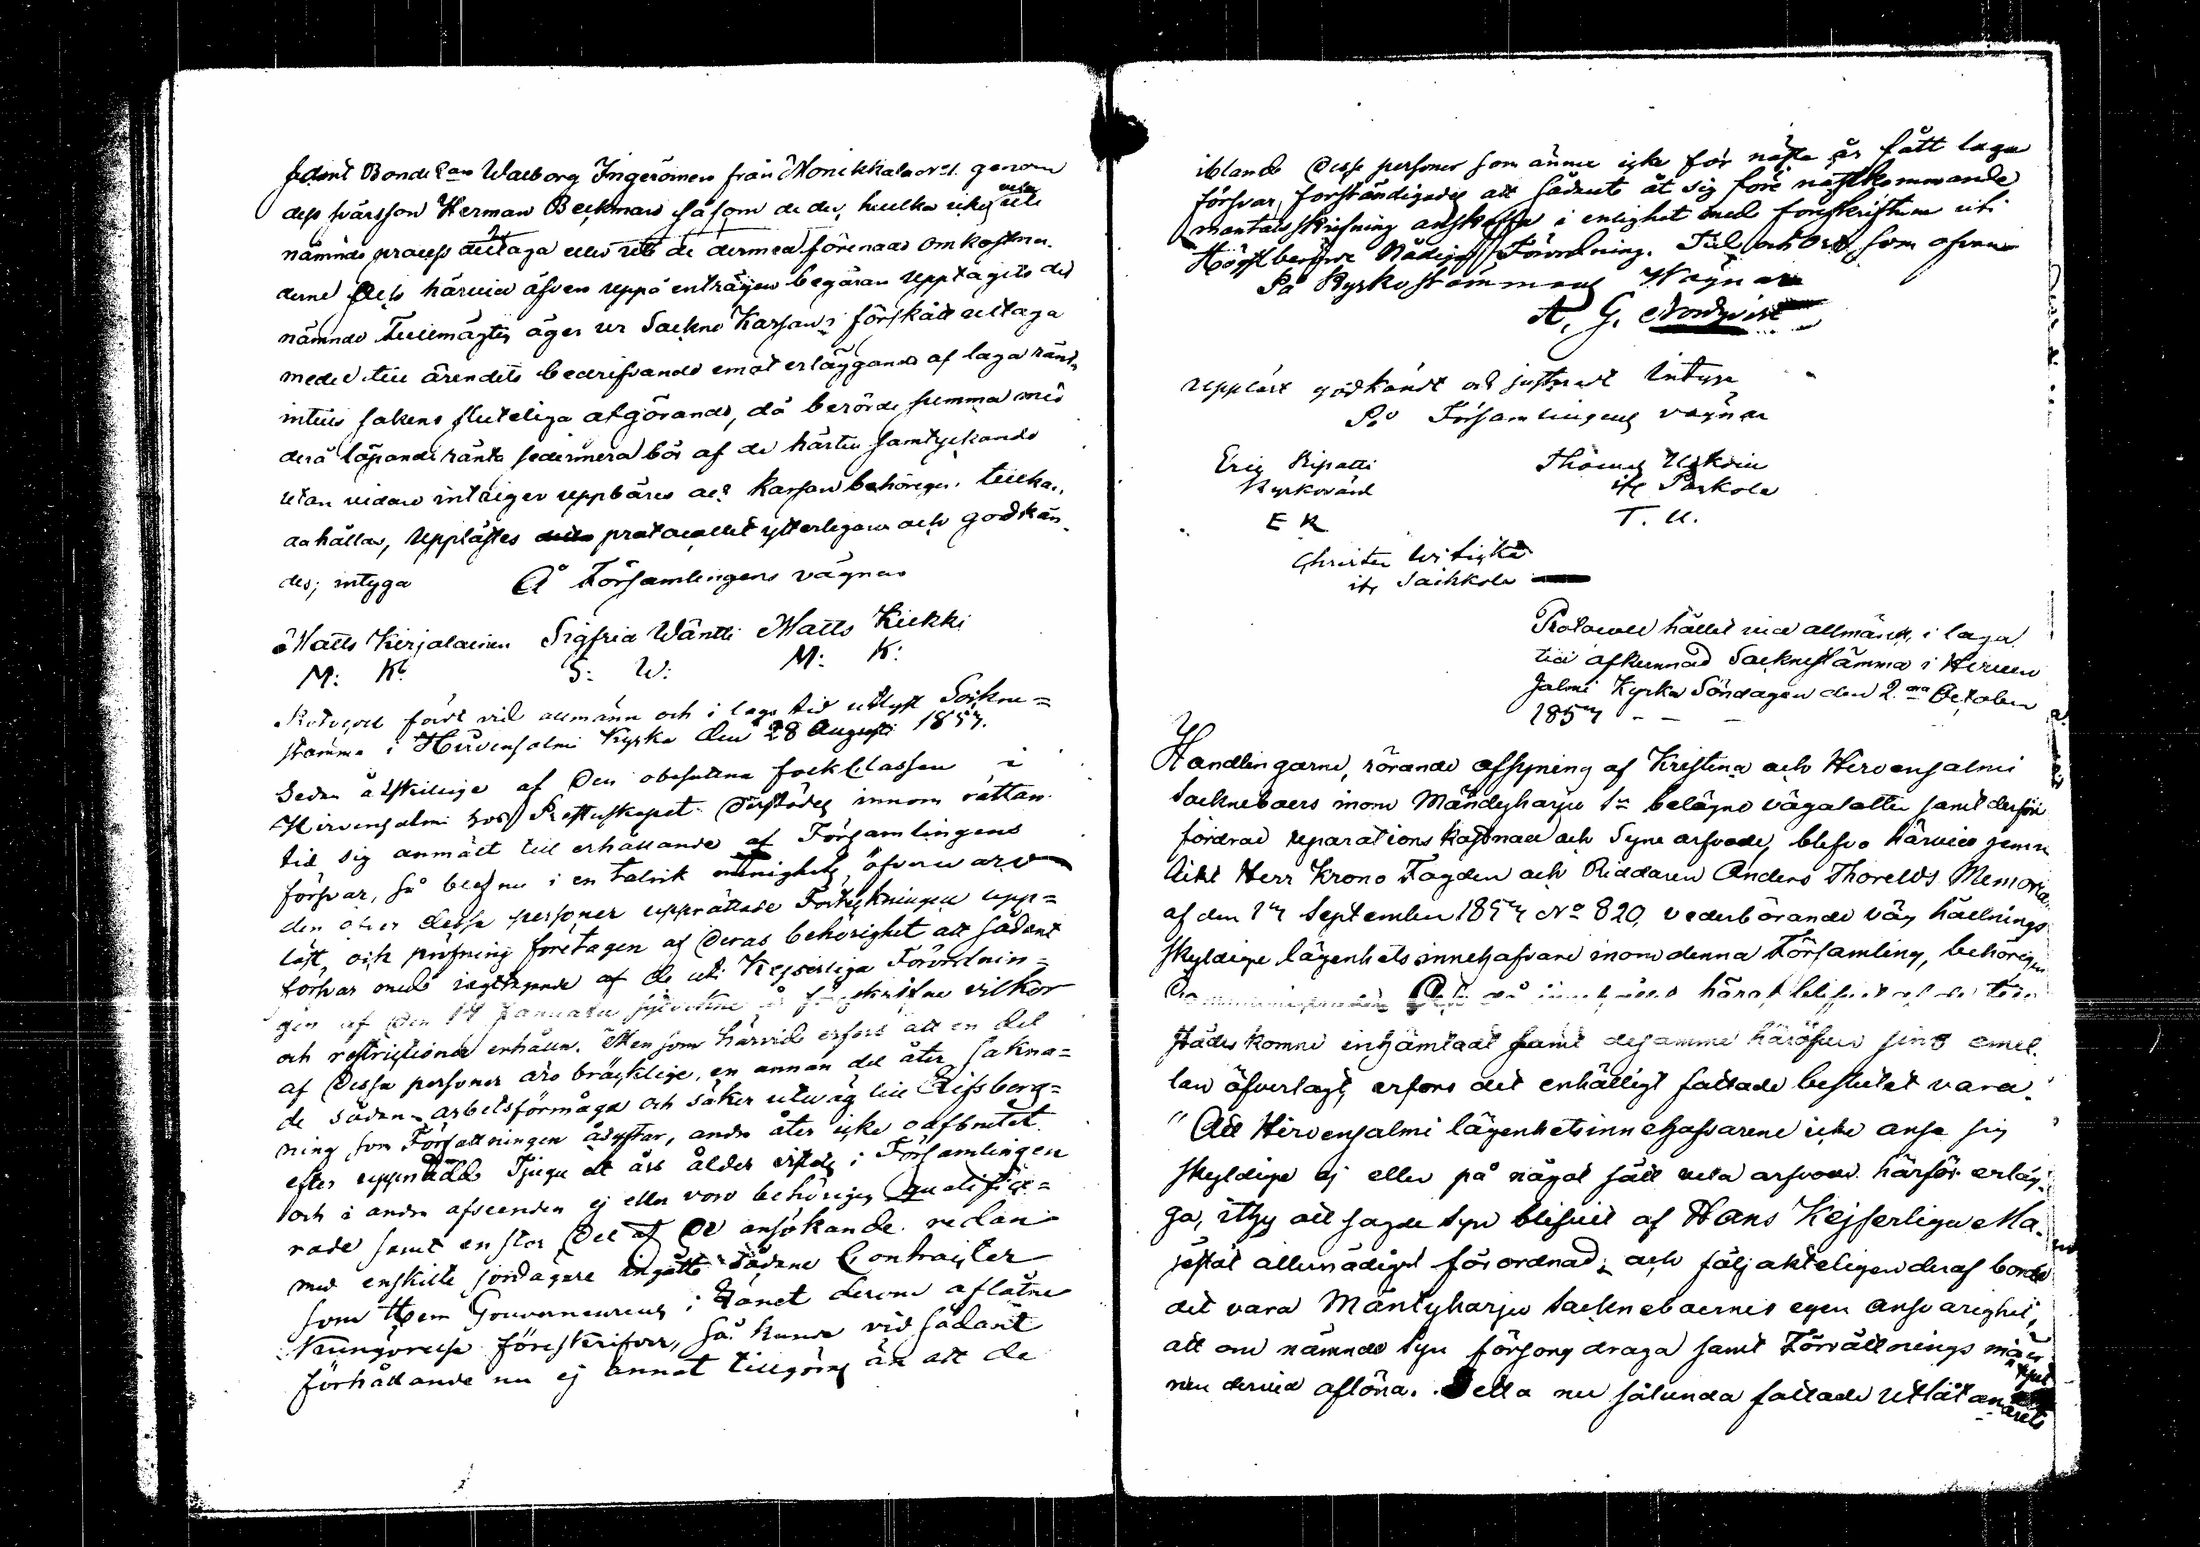 samt Bonde Enk. Walborg Ingeröinen från Monikkala No 1. genom
dess svärsson Herman Beckman såsom de der, hvilka icke velat uti
nämnde process deltaga eller uti de dermed förenade omkostna-
derne. Och härvid äfven uppå enträgen begäran upptagits det
nämnde Fullmägtig äger ur Sockne Kassan i förskått uttaga
medel till ärendets bedrifvande emot erläggande af laga ränta
intill sakens sluteliga afgörande, då berörde summa med
derå löpande ränta sedermera bör af de härtill samtyckande
utan vidare intäiger uppbäras och Kassan behörigen tillha.
dahållas, Upplästes protocollet ytterligare och godkän-
des; intyga På Församlingens vägnar
Matts Kirjalainen Sigfrid Wäntti Matts Kiekki
M: K: S: W: M: K:
Protocoll fördt vid allmänn och i laga tid utlyst Sockne=
stämma i Hirvensalmi Kyrka den 28 Augusti 1857.
Sedan åtskillige af den obesuttna folkklassen i
Hirvensalmi hos Presterskapet derstädes innom rättan
tid sig anmält till erhållande af Församlingens
försvar, så blef nu i en talrik menighets öfvervaro
den öfver dessa personer upprättade Förtekningen upp=
läst, och pröfning företagen af deras behörighet att sådant
försvar med iagttagande af de uti Kejserliga Förordnin=
gen af den 19 Januari sistledne år föreskrifne vilkor
och restrictioner erhålla. Men som härvid erfors att en del
af dessa personer äro bräcklige, en annan del åter sakna=
de sådan arbetsförmåga och säker utväg till Lifsberg=
ning som Författningen åsyftar, andre åter icke oafbrutet
efter uppnådde Tjugu ett års ålder vistats i Församlingen
och i andre afseenden ej eller voro behörigen qualifice=
rade samt en stor del af de ansökande redan
med enskilte jordägare ingått sådane Contracter
som Herr Gouverneurens i Länet derom aflåtne
Kungörelse föreskrifver, så kunde vid sådant
förhållande nu ej annat tillgöras än att de
ibland desse personer som ännu icke för nästa år fått laga
försvar, förständigades att sådant åt sig före nästkommande
mantalsskrifning anskaffa i enlighet med föreskriften uti
Högstberörde Nådiga Förordning. Tid och Ort som ofvan
På Kyrkostämmans Wägnar
A. G. Nordqvist
Uppläst godkändt och justeradt intyga
På Församlingens vägnar
Eric Ripatti Thomas Ukkoin
Kyrkovärd ifr Parkola
E R T. U.
Christer Witikka
ifr Saikkola
Protocoll hållet vid allmän, i laga
tid afkunnad Socknestämma i Hirven
salmi Kyrka Söndagen den 2dra October
1857
Handlingarne, rörande afsyning af Kristina och Hirvensalmi
Socknebors inom Mändyharju Sn belägne vägalotter samt derför
fordrad reparations kostnad och Syne arfvode, blefvo härvid jemn
likt Herr Krono Fogden och Riddaren Anders Thorelds Memorial
af den 17 September 1857 No 820, vederbörande väg hållnings
skyldige lägenhets innehafvare inom denna Församling, behörigen
Och då innehållet häraf blifvit af de till
städes komne inhämtadt samt desamme häröfver sins emel.
lan öfverlagt, erfors det enhälligt fattade beslutet vara.
" Att Hirvensalmi lägenhetsinnehafvarene icke anse sig
skyldige ej eller på något sätt vela arfvode härför erläg-
ga, ithy att sagde syn blifvit af Hans Kejserliga Ma.
jestät allernådigst förordnad; och följakteligen deraf borde
det vara Mäntyharju Socknebornes egen ansvarighet,
att om nämnde syn försorg draga samt Förrättnings män
nen dervid aflöna. Detta nu sålunda fattade utlåtan